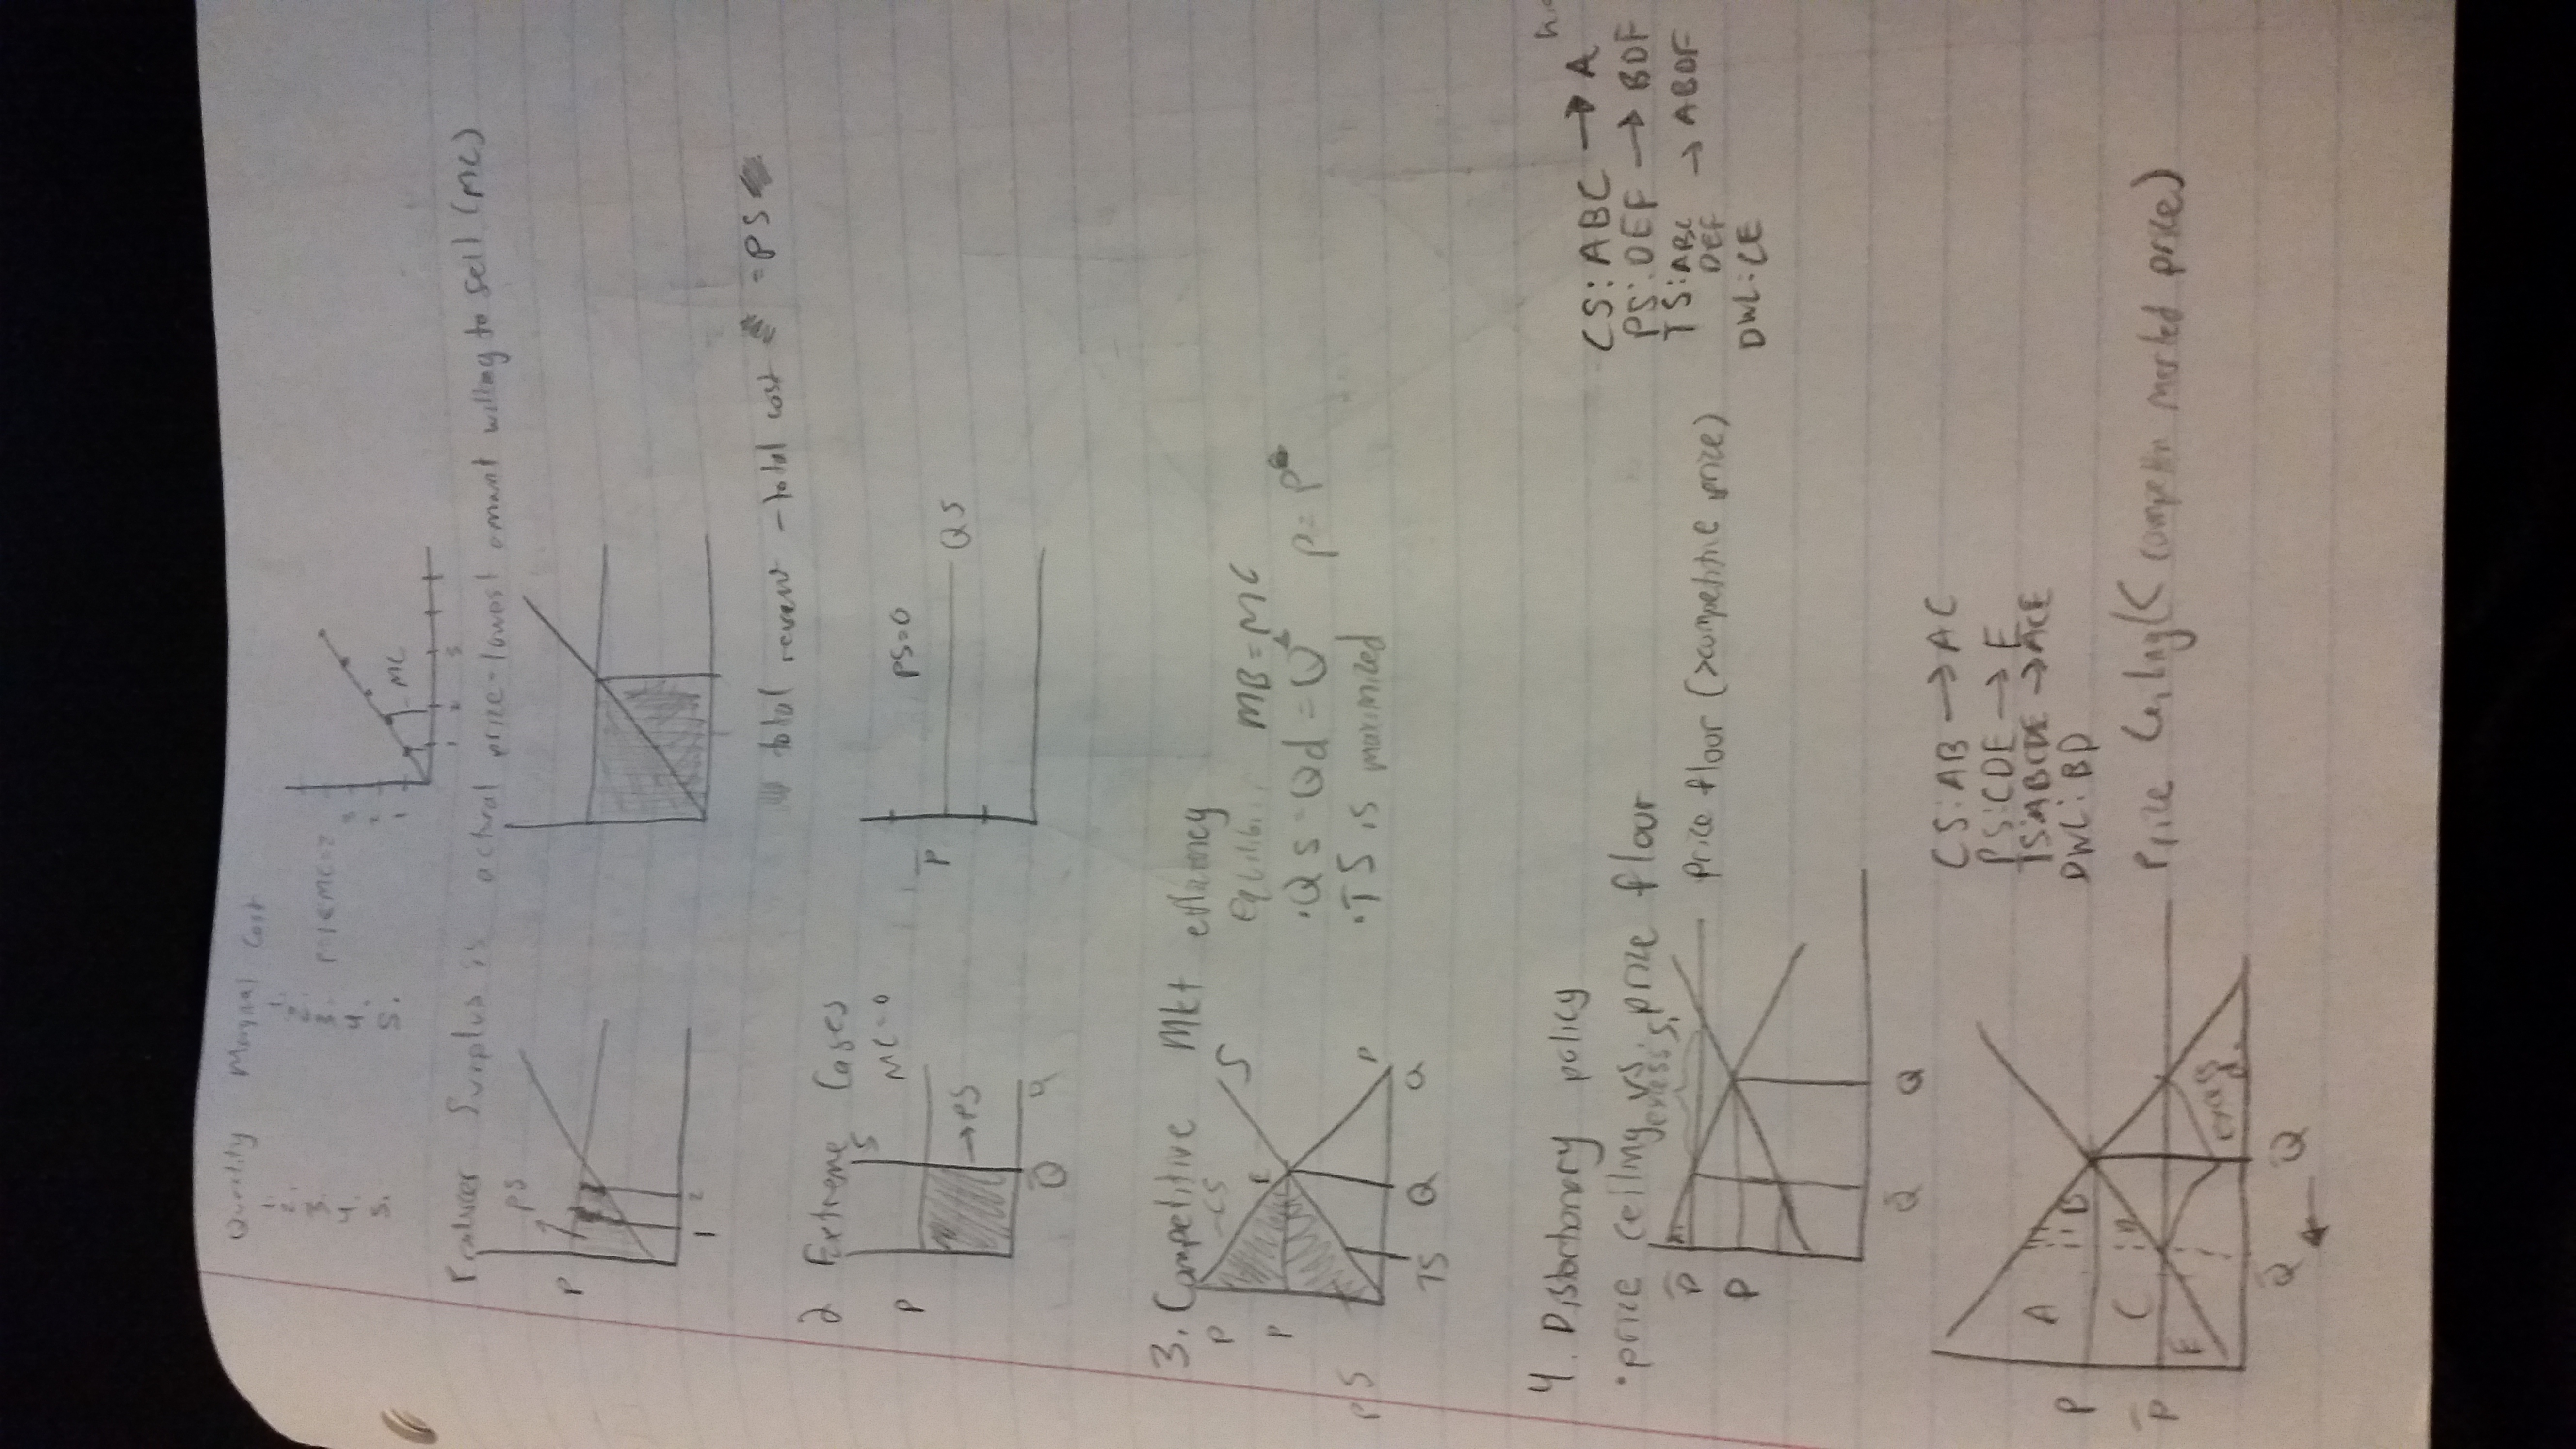 Quantity Marginal Cost
1. 1.
2. 2.
3. 3.
4. 4.
5. 5.
3
2
1
MC
1 2 3
Producer Surplus is actual price - lowest omant willing to sell (MC)
PS
P
1 2
total revenue - total cost = PS
2 Extreme Cases
MC=0
S
P
→PS
Q̄
q
PS=0
P̄
QS
3. Competitive Mkt effiancy
P
CS
S
E
P
PS
Q
Q
TS
MB=MC
·Qs=Qd=Q
P=P
·TS is maximized
4. Distortionary policy
·price ceiling vs. price floor
excess S.
P̄
P
Price floor (>competitive price)
Q̄ Q
CS: ABC → A
PS: DEF → BDF
TS: ABC DEF → ABDF
DWL: CE
CS: AB → AC
PS: CDE → E
TS: ABCDE → ACE
DWL: BD
A
B
C
D
E
P
P̄
excess d.
Price Ceiling (< competitn marted price)
Q̄ ← Q